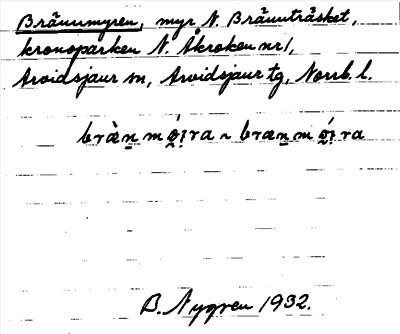 Brännmyren, myr N. Brännträsket,
kronoparken N. Åkroken nr 1,
Arvidsjaur sn, Arvidsjaur tg, Norrb. l.
bràn̲ m ó̲i̯ra ~ bræn̲ m ó̲i̯ra
B. Nygren 1932.